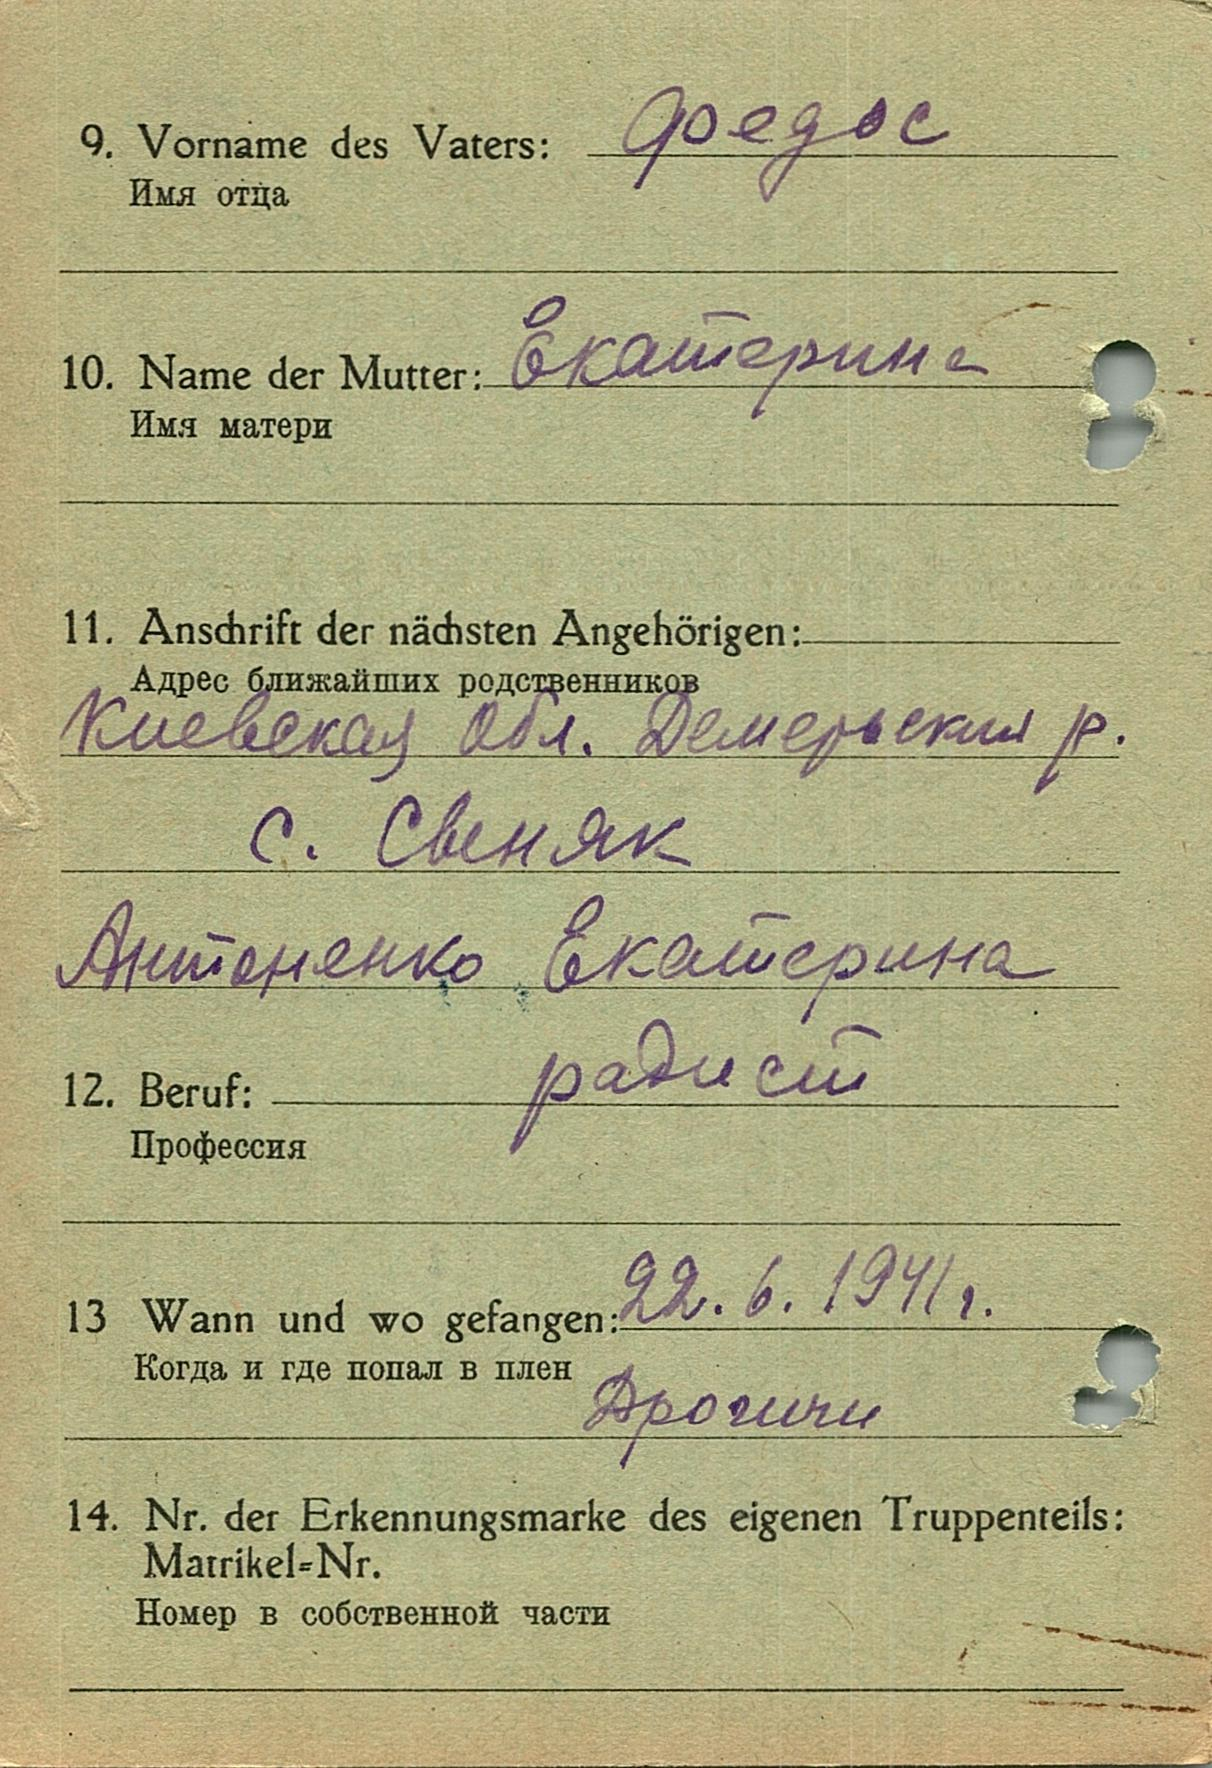 9. Vorname des Vaters: Федос
Имя отца
10. Name der Mutter: Екатерина
Имя матери
11. Anschrift der nächsten Angehörigen:
Адрес ближайших родственников
Киевская обл. Демерьский р.
с. Свеняк
Антоненко Екатерина
12. Beruf: радист
Профессия
13 Wann und wo gefangen: 22. 6. 1941 г.
Когда и где попал в плен
Дрогичи
14. Nr. der Erkennungsmarke des eigenen Truppenteils:
Matrikel=Nr.
Номер в собственной части